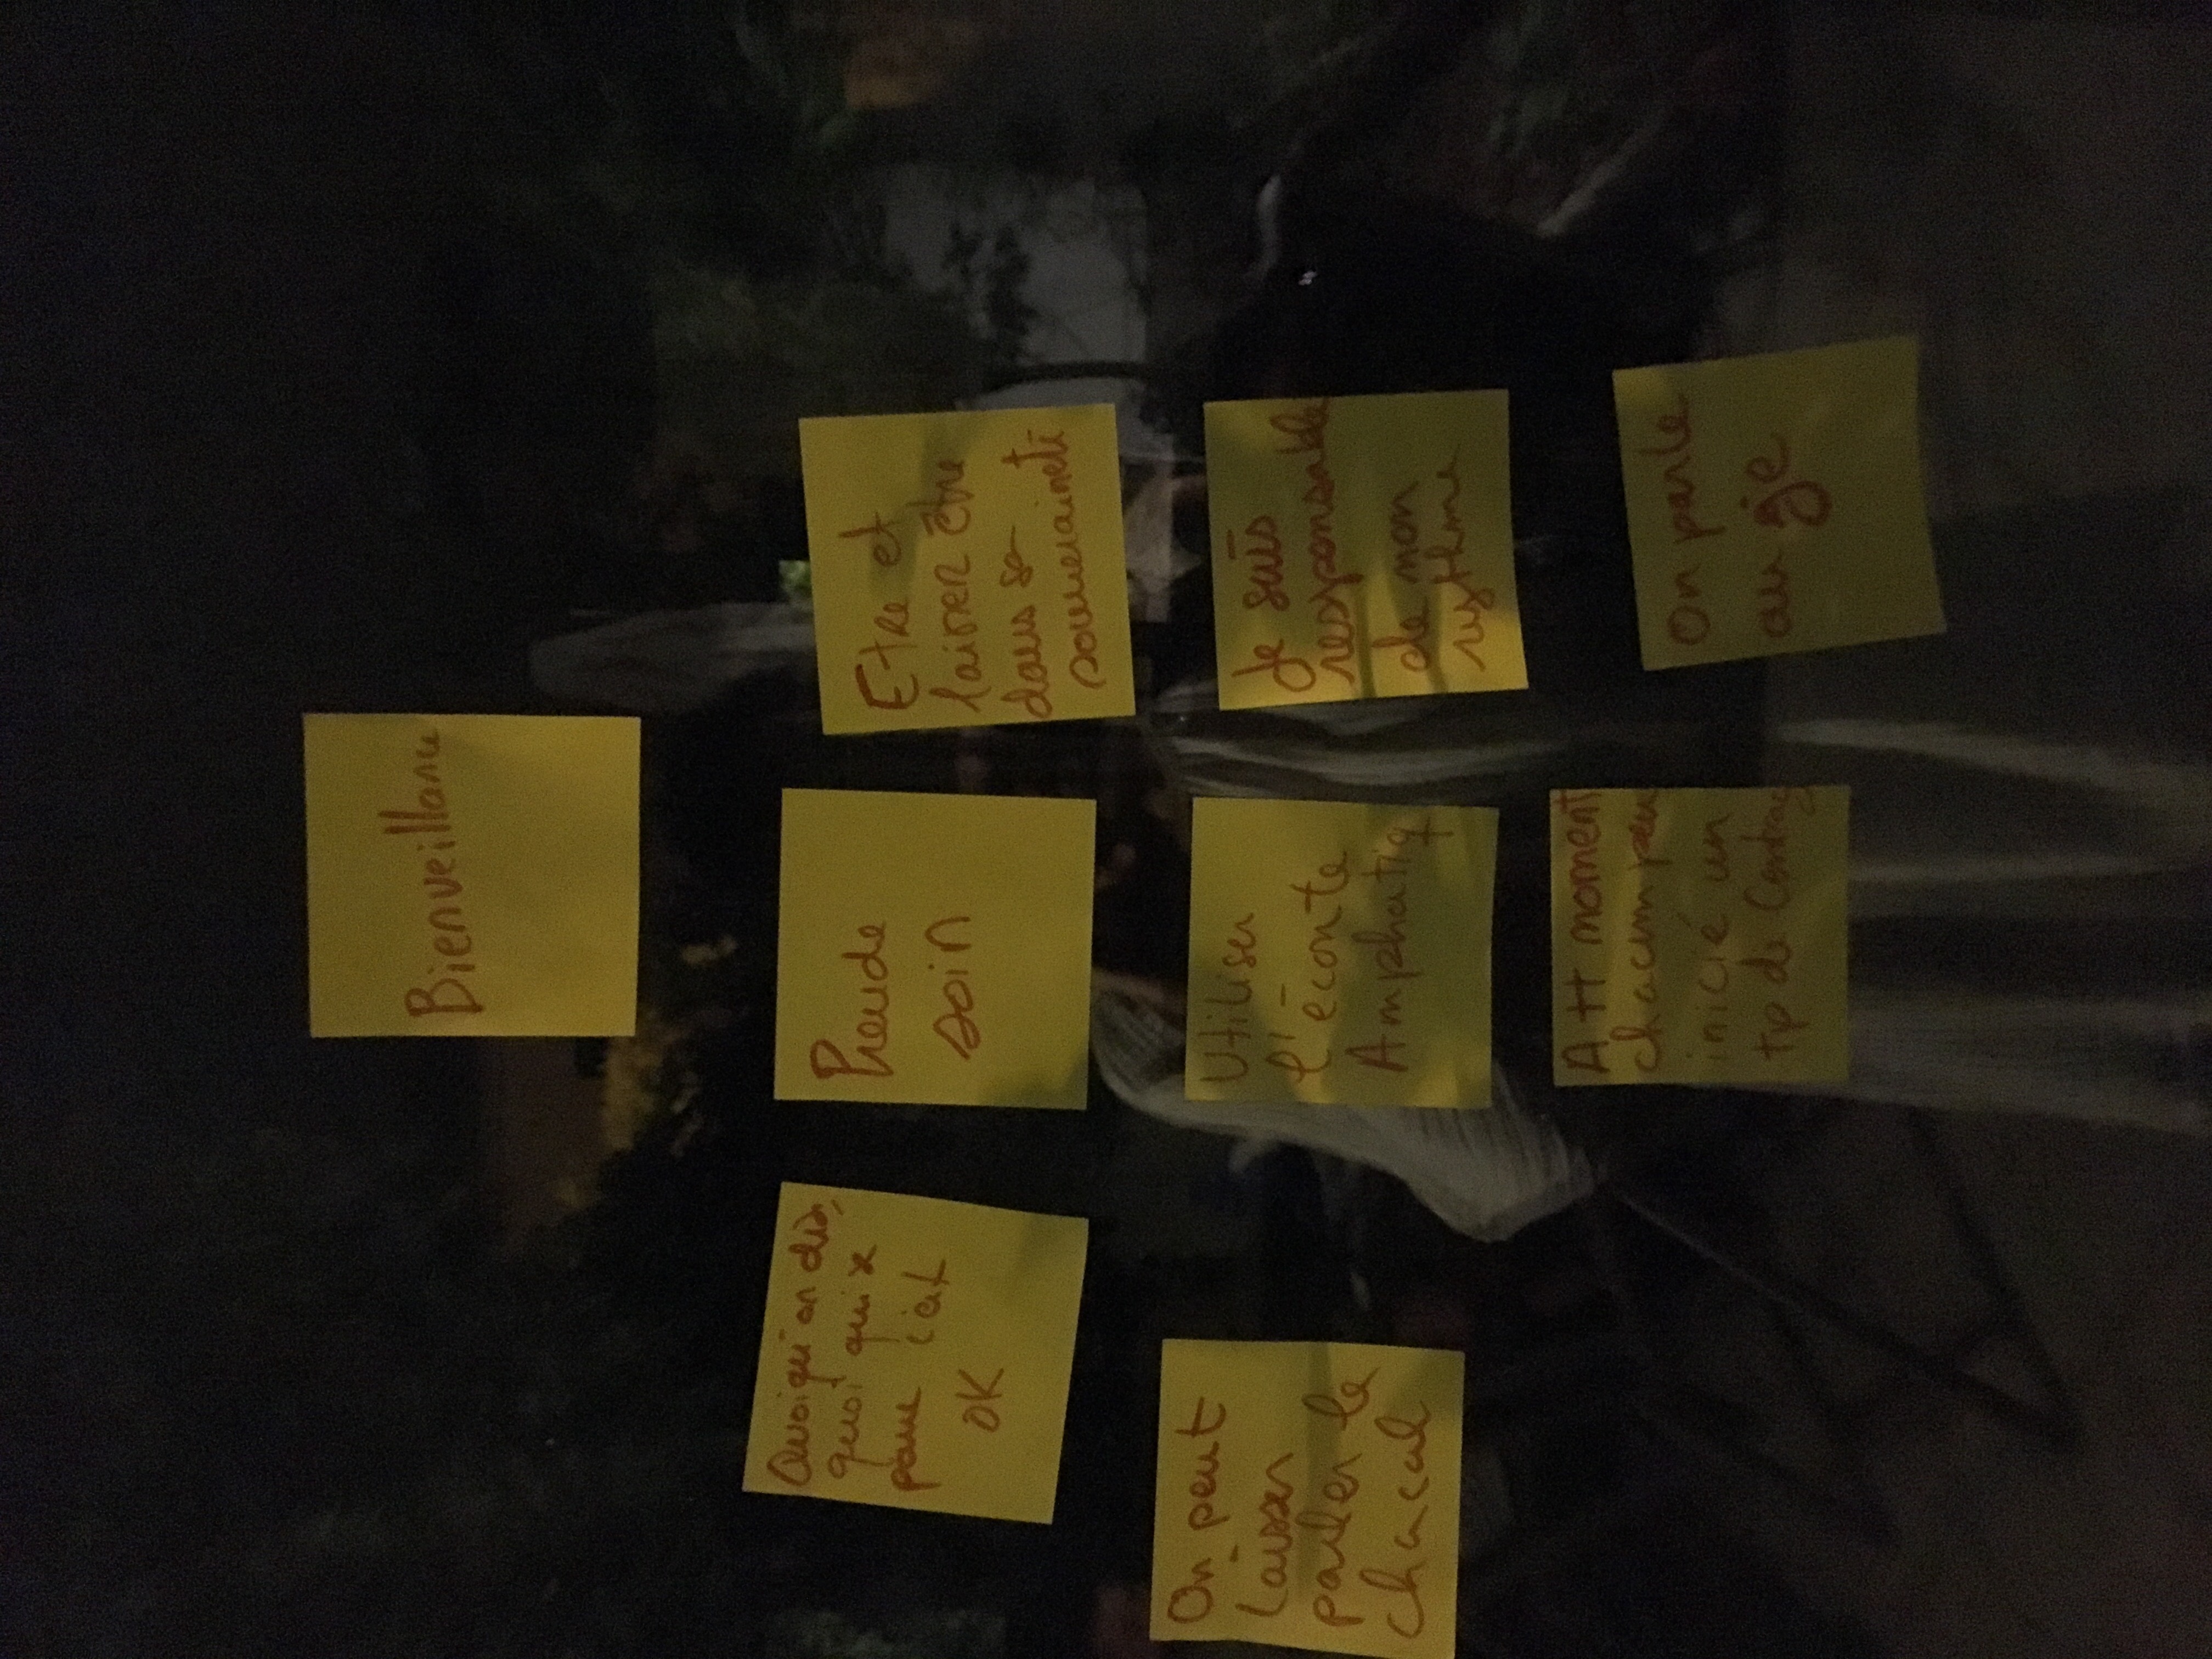 Bienveillance
Quoiqu'on dise,
quoi qui se
passe c'est
OK
Prendre
soin
Etre et
laisser être
dans sa
souveraineté
On peut
laisser
parler le
chacal
Utiliser
l'écoute
Amphatiq
Je suis
responsable
de mon
rythme
A tt moment
chacun peu
inicié un
tip de
On parle
au je